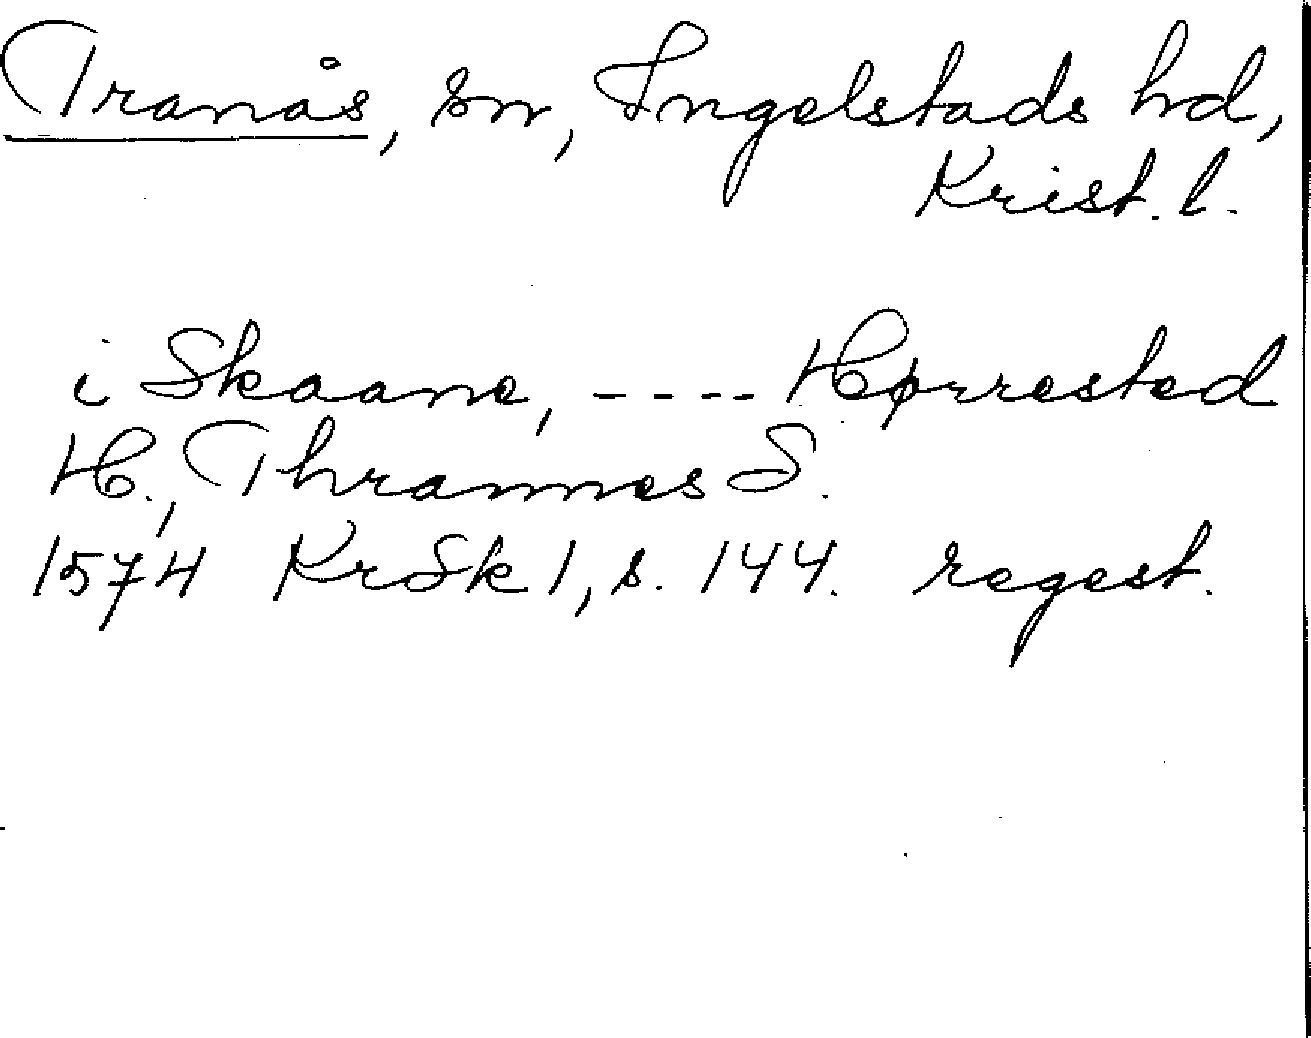 Tranås, sn, Ingelstads hd,
Krist. l.
i Skaane, ---- Hørrested
H., Thrannes S.
1574 KrSk 1, s. 144. regest.